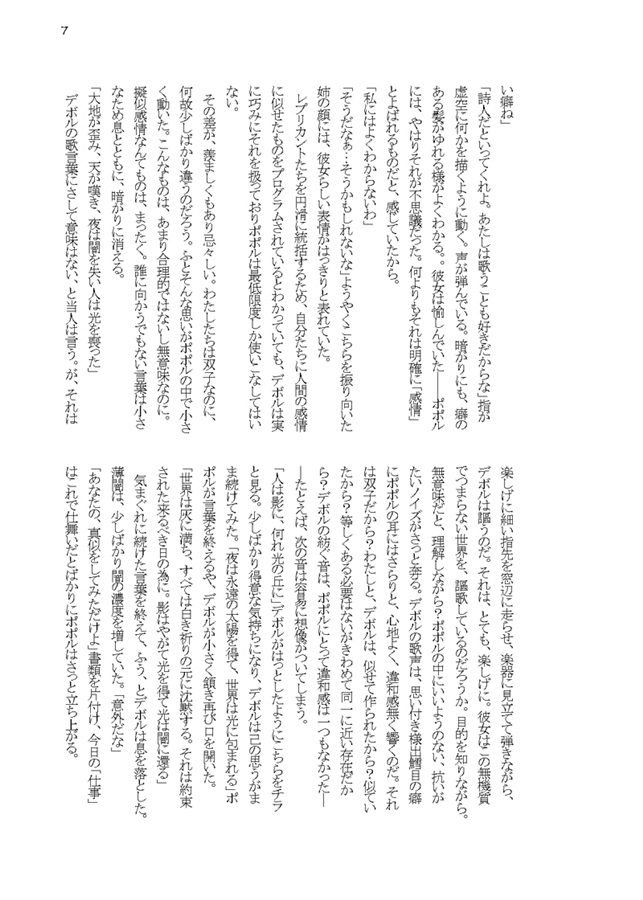 7
い癖ね」
「詩人だといってくれよ。あたしは歌うことも好きだからな」指が
虚空に何かを描くように動く。声が弾んでいる。暗がりにも、癖の
ある髪がゆれる様がよくわかる。。彼女は愉しんでいた――ポポル
には、やはりそれが不思議だった。何よりもそれは明確に「感情」
とよばれるものだと、感じていたから。
「私にはよくわからないわ」
「そうだなぁ…そうかもしれないな」ようやくこちらを振り向いた
姉の顔には、彼女らしい表情がはっきりと表れていた。
レプリカントたちを円滑に統括するため、自分たちに人間の感情
に似せたものをプログラムされているとわかっていても、デボルは実
に巧みにそれを扱っておりポポルは最低限度しか使いこなしてはい
ない。
その差が、羨ましくもあり忌々しい。わたしたちは双子なのに、
何故少しばかり違うのだろう。ふとそんな思いがポポルの中で小さ
く動いた。こんなものは、あまり合理的ではないし無意味なのに。
擬似感情なんてものは、まったく。誰に向かうでもない言葉は小さ
なため息とともに、暗がりに消える。
「大地が歪み、天が嘆き、夜は闇を失い人は光を喪った」
デボルの歌言葉にさして意味はない、と当人は言う。が、それは
楽しげに細い指先を窓辺に走らせ、楽器に見立てて弾きながら、
デボルは謳うのだ。それは、とても、楽しげに。彼女はこの無機質
でつまらない世界を、謳歌しているのだろうか。目的を知りながら。
無意味だと、理解しながら？ポポルの中にいいようのない、抗いが
たいノイズがさっと奔る。デボルの歌声は、思い付き様出鱈目の癖
にポポルの耳にはさらりと、心地よく、違和感無く響くのだ。それ
は双子だから？わたしと、デボルは、似せて作られたから？似てい
たから？等しくある必要はないがきわめて同一に近い存在だか
ら？デボルの紡ぐ音は、ポポルにとって違和感は一つもなかった―
―たとえば、次の音は容易に想像がついてしまう。
「人は影に、何れ光の丘に」デボルがはっとしたようにこちらをチラ
と見る。少しばかり得意な気持ちになり、デボルは己の思うがま
ま続けてみた。「夜は永遠の太陽を得て、世界は光に包まれる」ポ
ポルが言葉を終えるや、デボルが小さく頷き再び口を開いた。
「世界は灰に満ち、すべては白き祈りの元に沈黙する。それは約束
された来るべき日の為に。影はやがて光を得て光は闇に還る」
気まぐれに続けた言葉を終えて、ふう、とデボルは息を落とした。
薄闇は、少しばかり闇の濃度を増していた。「意外だな」
「あなたの、真似をしてみただけよ」書類を片付け、今日の「仕事」
はこれで仕舞いだとばかりにポポルはさっと立ち上がる。